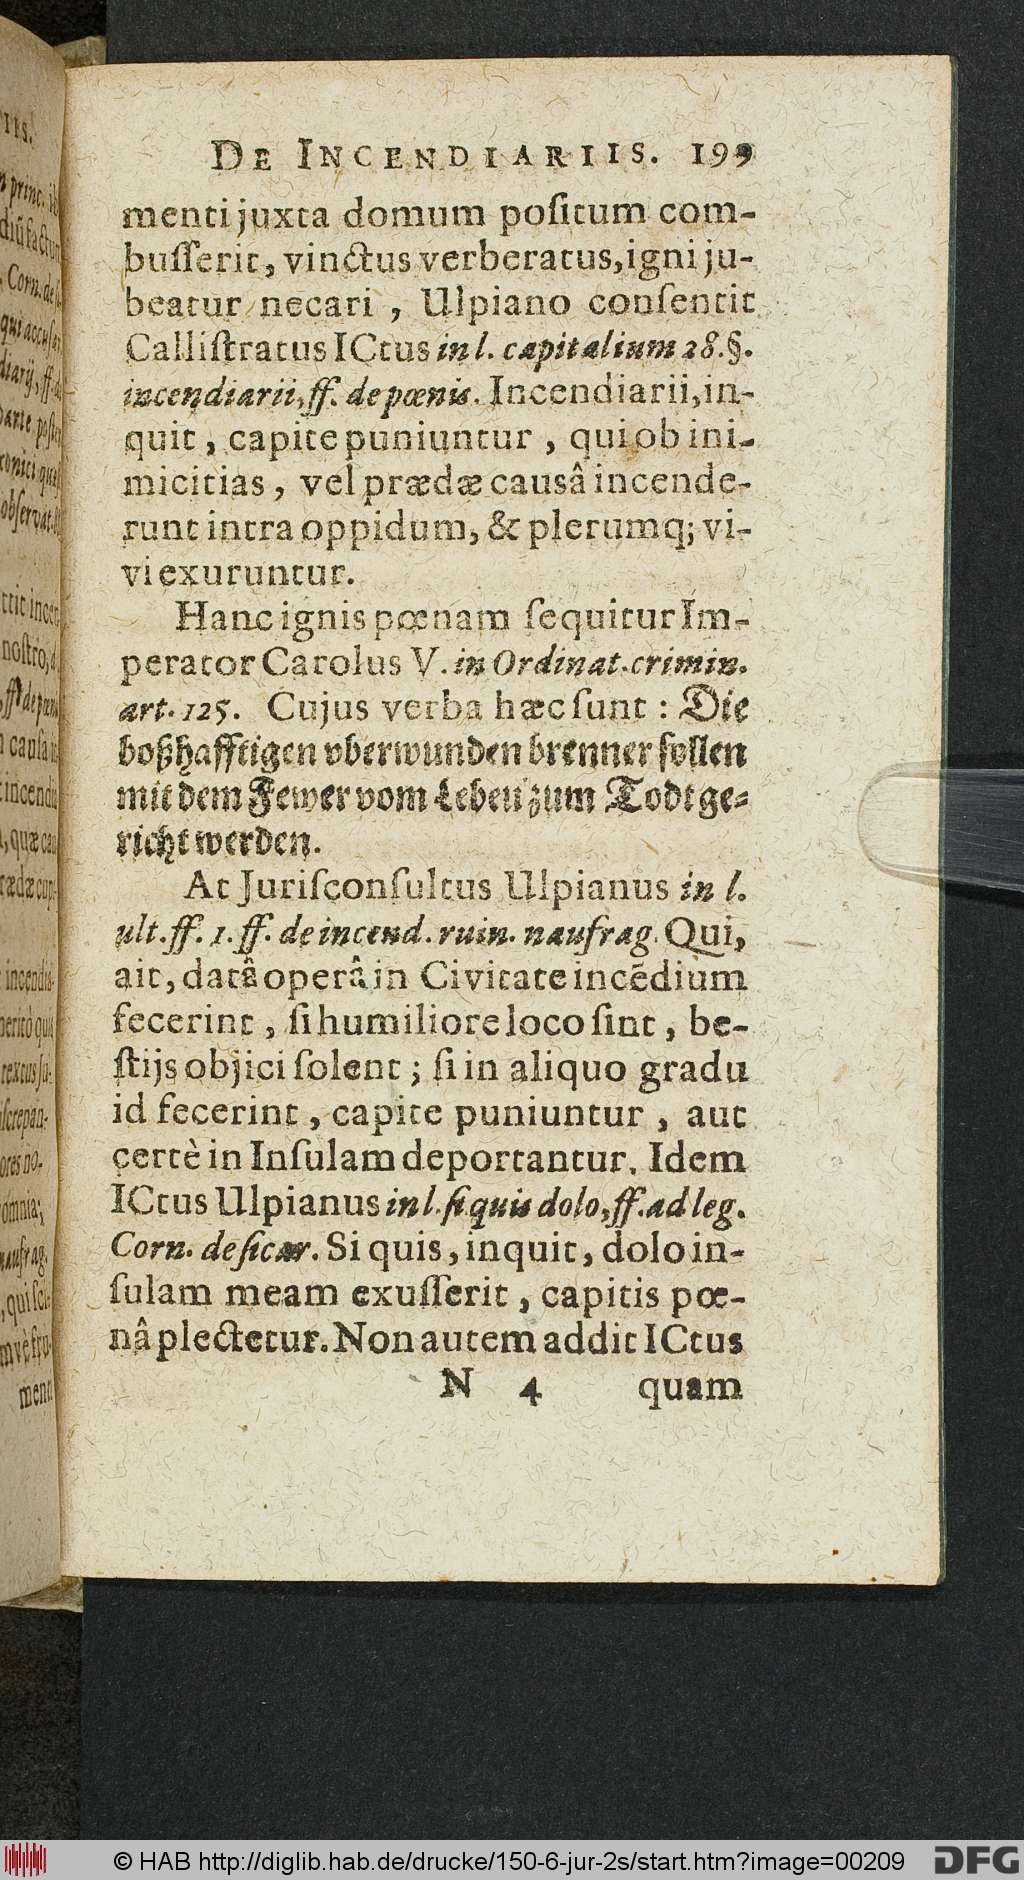 DE INCENDIARIIS. 199
menti juxta domum poſitum com-
buſſerit, vinctus verberatus, igni ju-
beatur necari, Ulpiano conſentit
Calliſtratus ICtus in l. capitalium 28. §.
incendiarii, ff. de pœnis. Incendiarii, in-
quit, capite puniuntur, qui ob ini-
micitias, vel prædæ causâ incende-
runt intra oppidum, & plerumq; vi-
vi exuruntur.
Hanc ignis pœnam ſequitur Im-
perator Carolus V. in Ordinat. crimin.
art. 125. Cujus verba hæc ſunt: Die
boßhafftigen vberwunden brenner ſollen
mit dem Fewer vom Leben zum Todt ge-
richt werden.
At Juriſconſultus Ulpianus in l.
ult. ff. 1. ff. de incend. ruin. naufrag. Qui,
ait, datâ operâ in Civitate incẽdium
fecerint, ſi humiliore loco ſint, be-
ſtijs objici ſolent; ſi in aliquo gradu
id fecerint, capite puniuntur, aut
certè in Inſulam deportantur. Idem
ICtus Ulpianus in l. ſi quis dolo, ff. ad leg.
Corn. de ſicar. Si quis, inquit, dolo in-
ſulam meam exuſſerit, capitis pœ-
nâ plectetur. Non autem addit ICtus
N 4 quam
© HAB http://diglib.hab.de/drucke/150-6-jur-2s/start.htm?image=00209
DFG